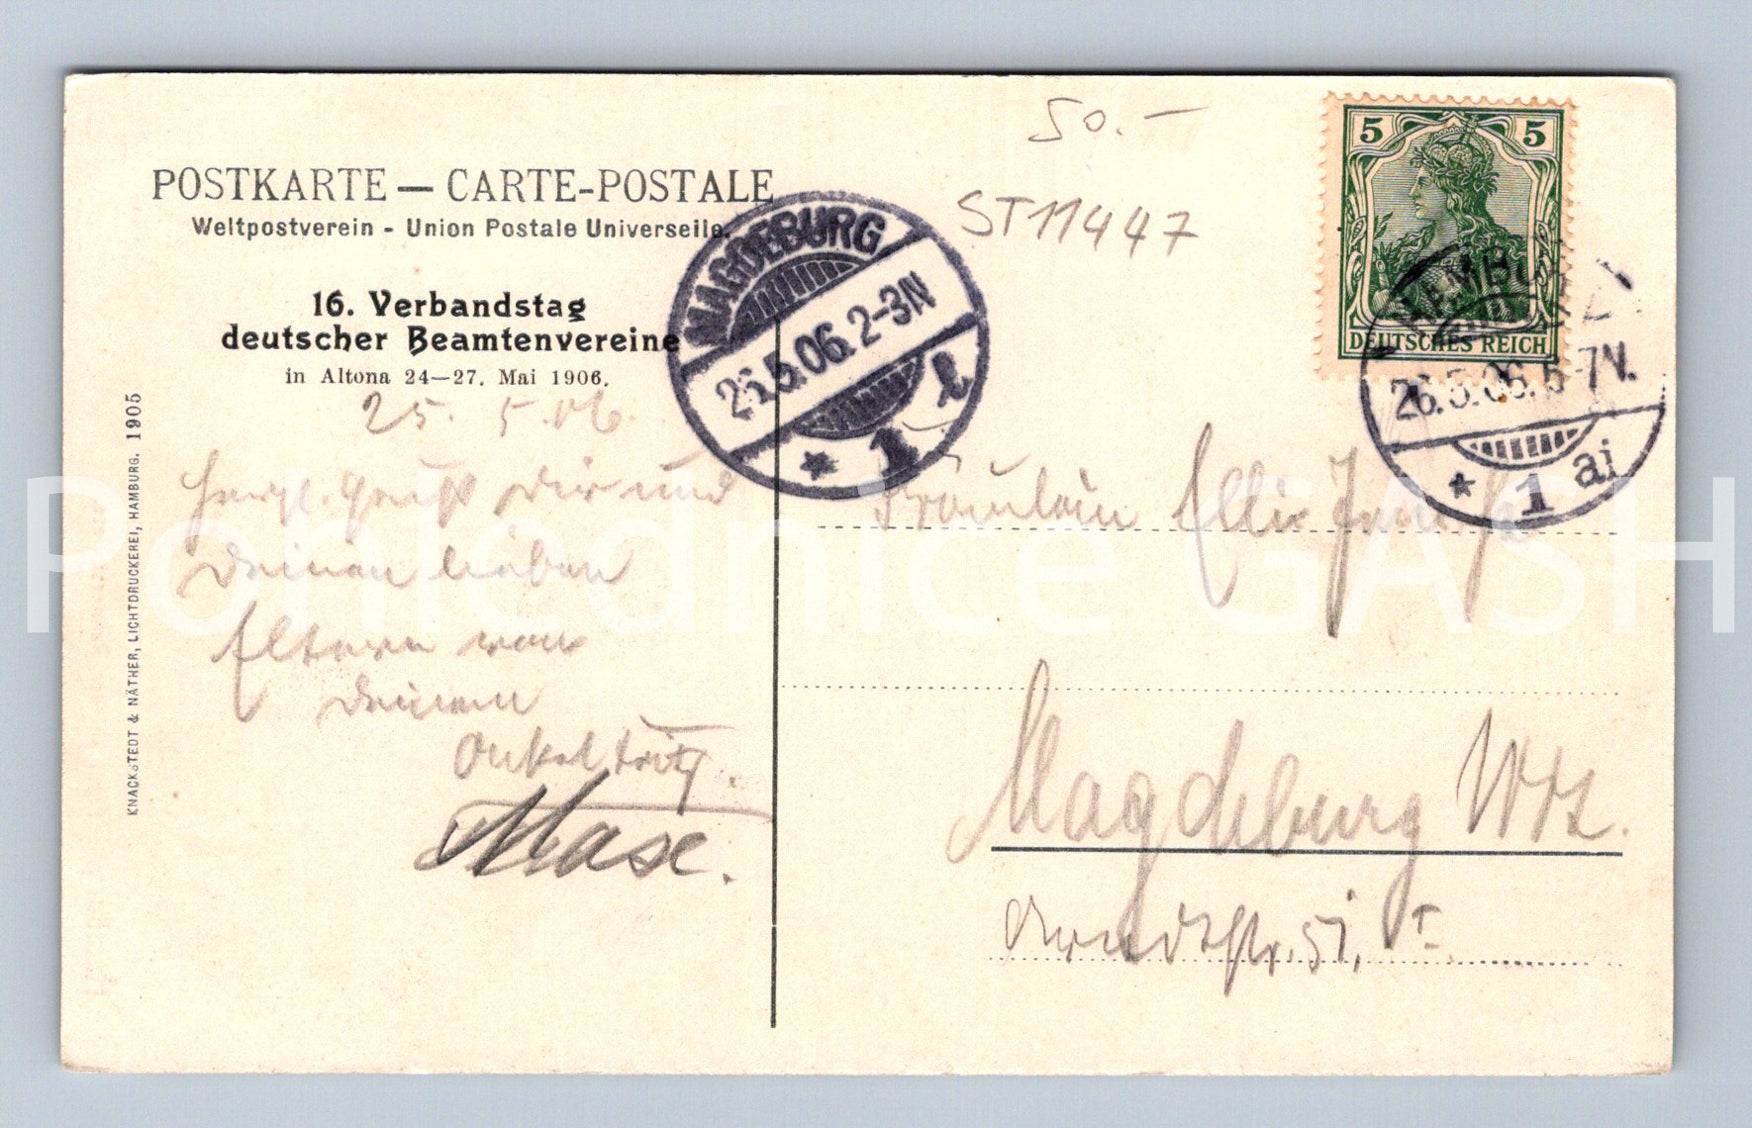 50.-
POSTKARTE — CARTE-POSTALE
Weltpostverein - Union Postale Universelle.
ST11447
5 5
DEUTSCHES REICH
16. Verbandstag
deutscher Beamtenvereine
in Altona 24—27. Mai 1906.
MAGDEBURG
26.5.06. 2-3N
* 1 l
HAMBURG
26.5.06. 5-7V.
* 1 ai
25. 5. 06.
Herzl. Gruß Dir und
Deinen lieben
Eltern von
Deinem
Onkel Fritz.
Mase.
Fräulein Elli
Magdeburg
str. 51, I
KNACKSTEDT & NÄTHER, LICHTDRUCKEREI, HAMBURG. 1905
Pohlednice GASH